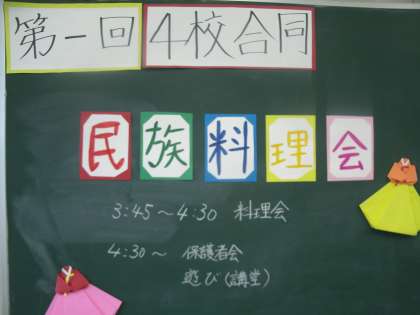 第一回 4校合同
民族料理会
3:45～4:30 料理会
4:30～ 保護者会
遊び(講堂)